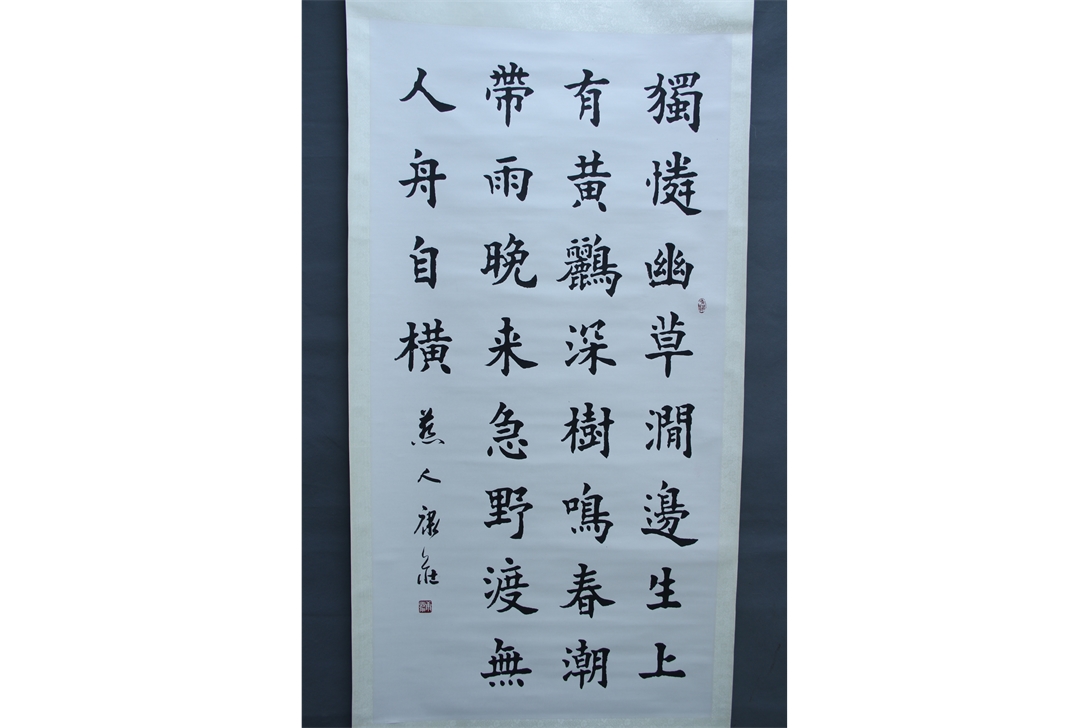 獨憐幽草澗邊生上
有黄鸝深樹鳴春潮
帶雨晚来急野渡無
人舟自橫
燕人康莊